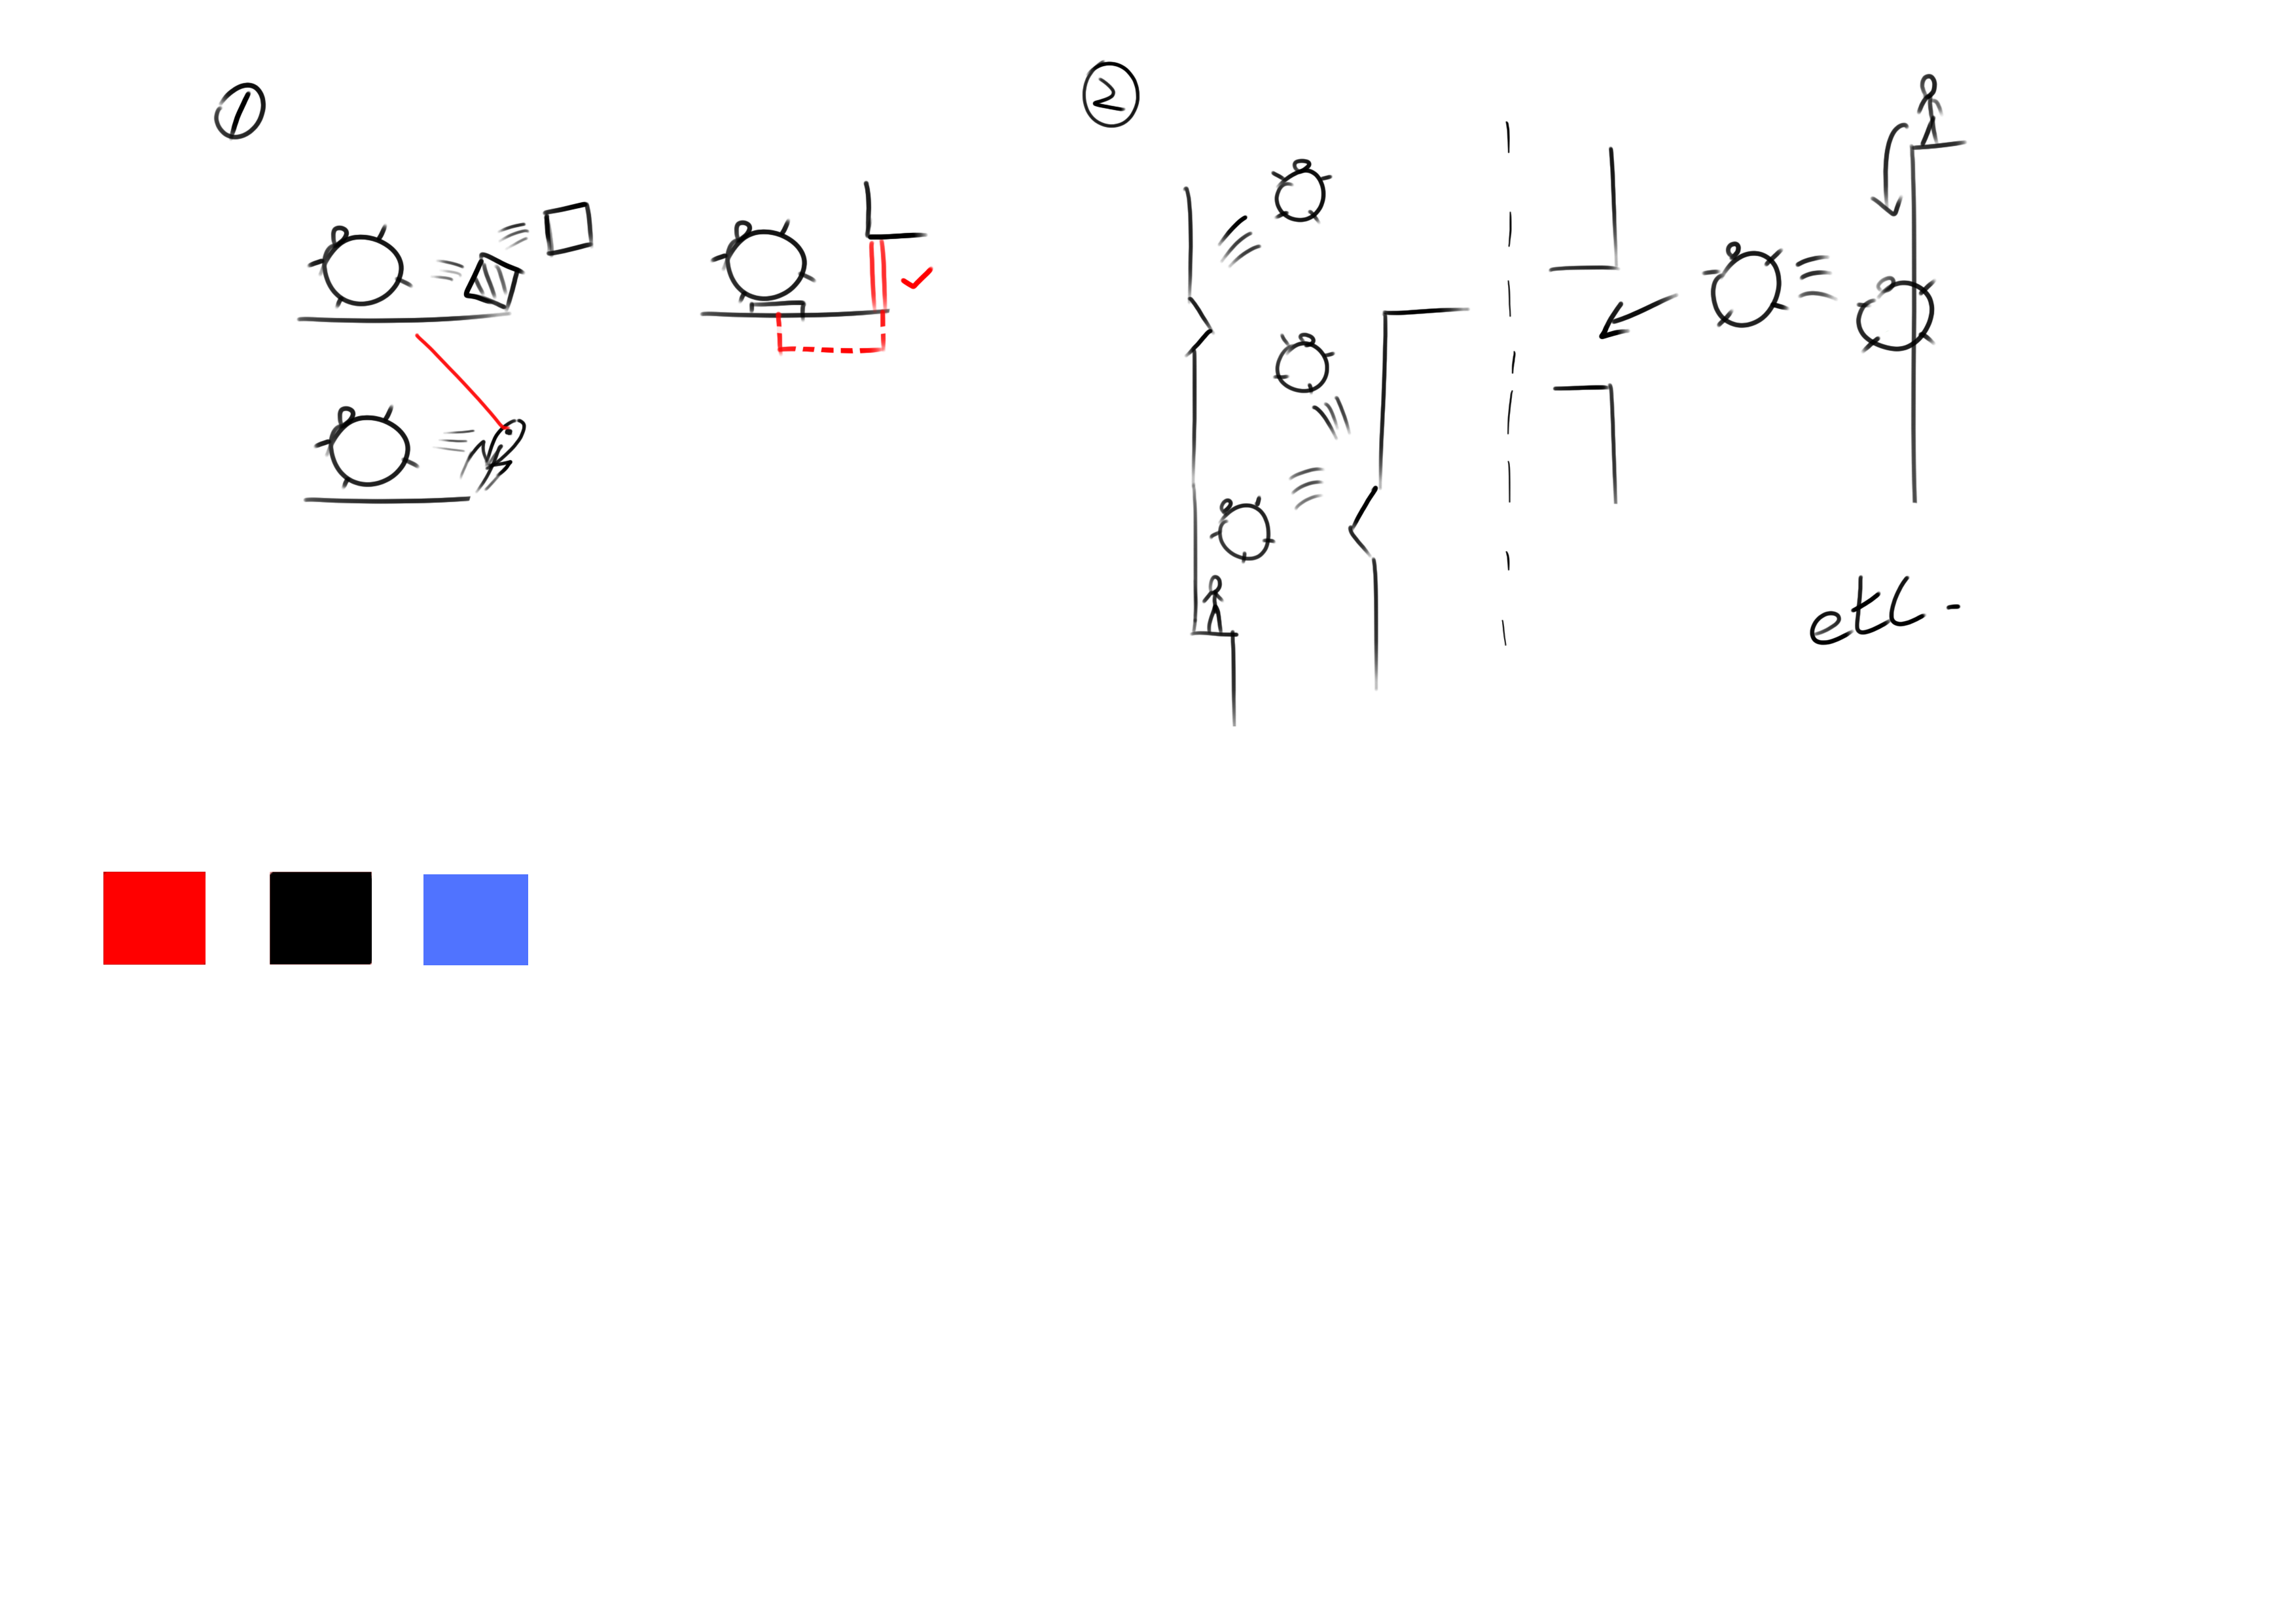 1
2
etc.